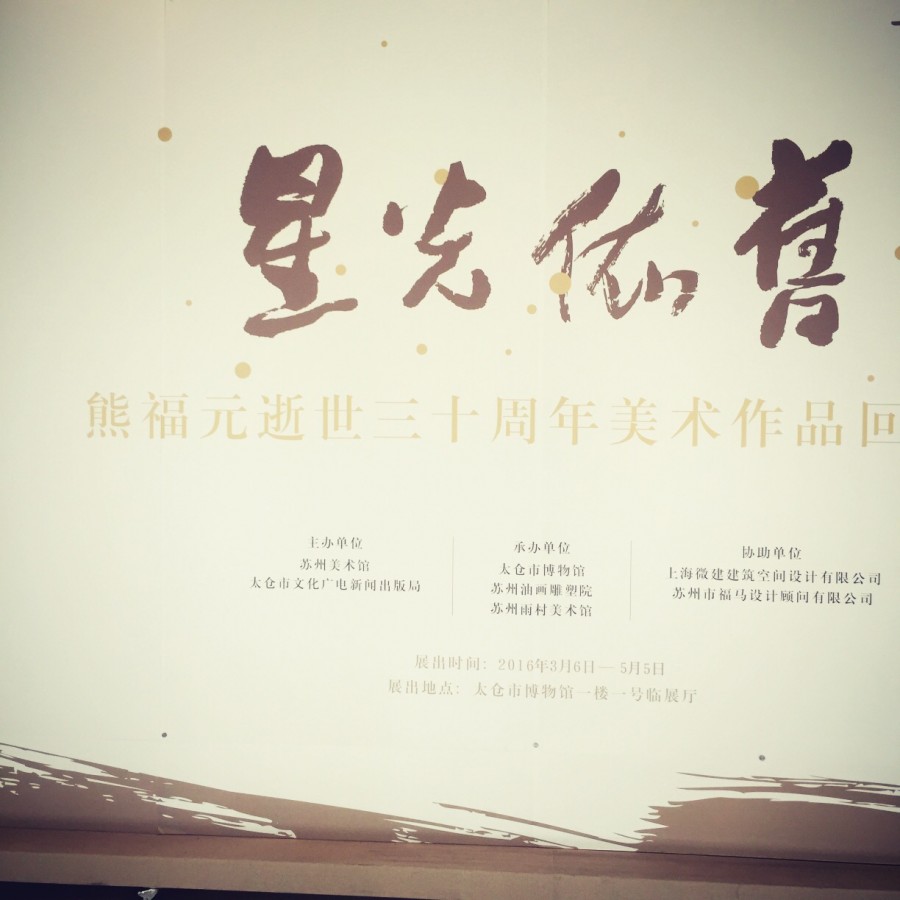 星光依舊
熊福元逝世三十周年美术作品回
主办单位
苏州美术馆
太仓市文化广电新闻出版局
承办单位
太仓市博物馆
苏州油画雕塑院
苏州雨村美术馆
协助单位
上海微建建筑空间设计有限公司
苏州市福马设计顾问有限公司
展出时间：2016年3月6日—5月5日
展出地点：太仓市博物馆一楼一号临展厅